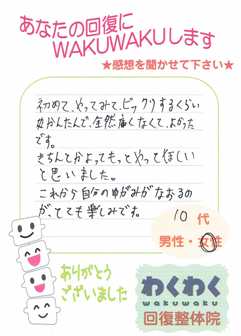 あなたの回復に
WAKUWAKUします
★感想を聞かせて下さい★
初めて、やってみて、ビックリするくらい
簡たんで、全然痛くなくて、よかった
です。
きちんとかよってもっとやってほしい
と思いました。
これから自分のゆがみがなおるの
が、とても楽しみです。
10代
男性・女性
ありがとう
ございました
わくわく
wakuwaku
回復整体院